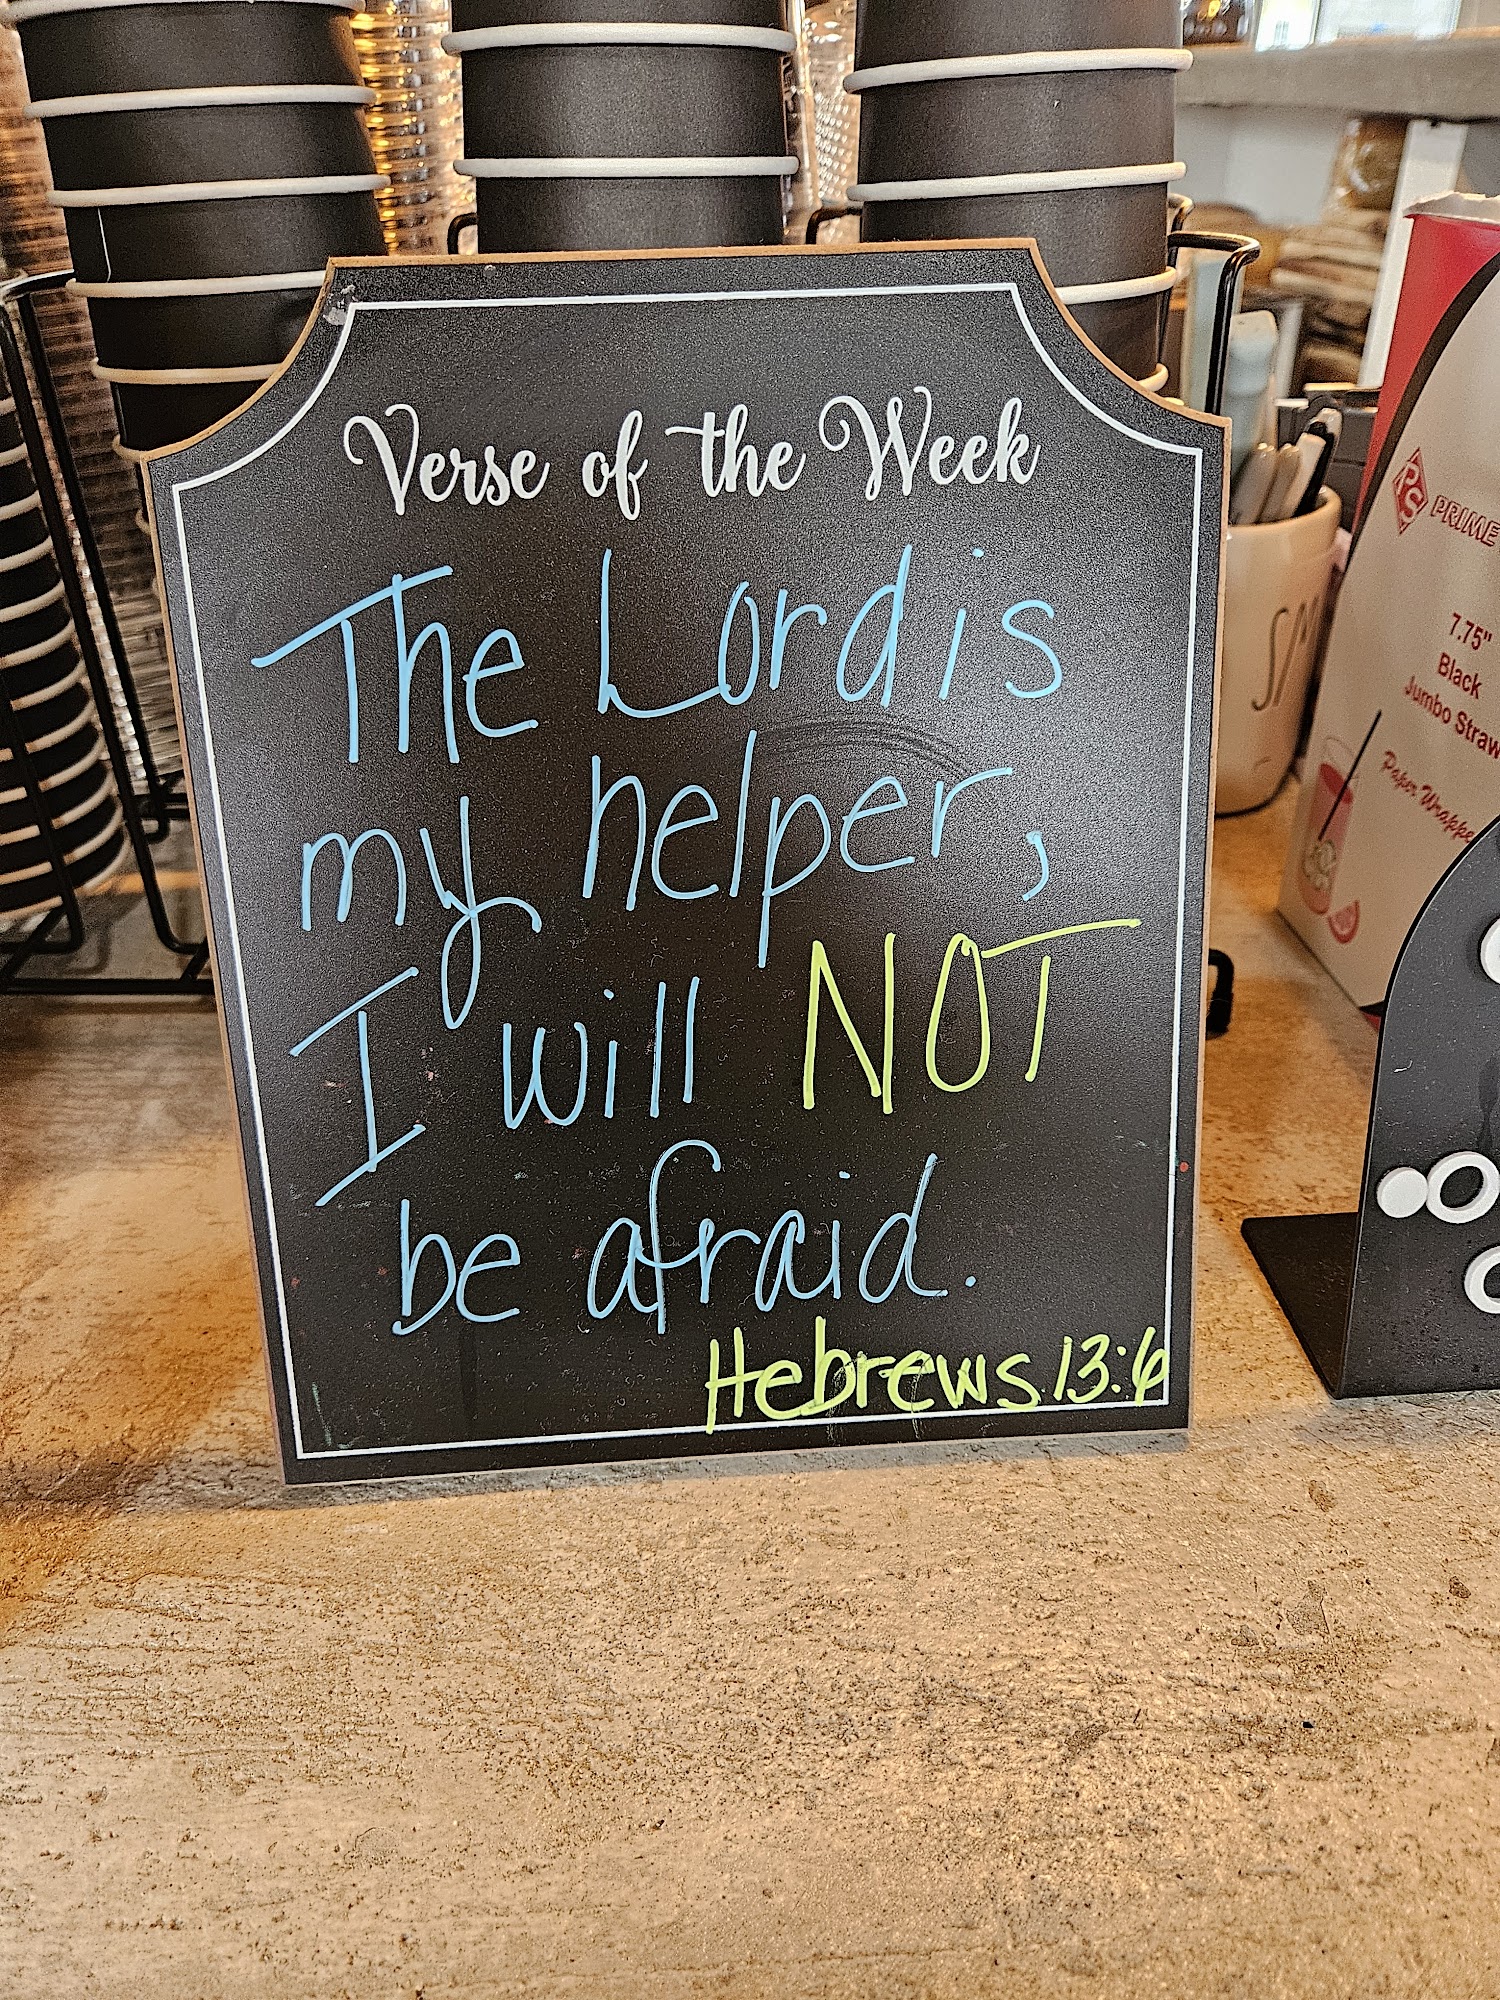 Verse of the Week
The Lord is
my helper,
I will NOT
be afraid.
Hebrews 13:6
PS PRIME
7.75"
Black
Jumbo Straw
Paper Wrappe